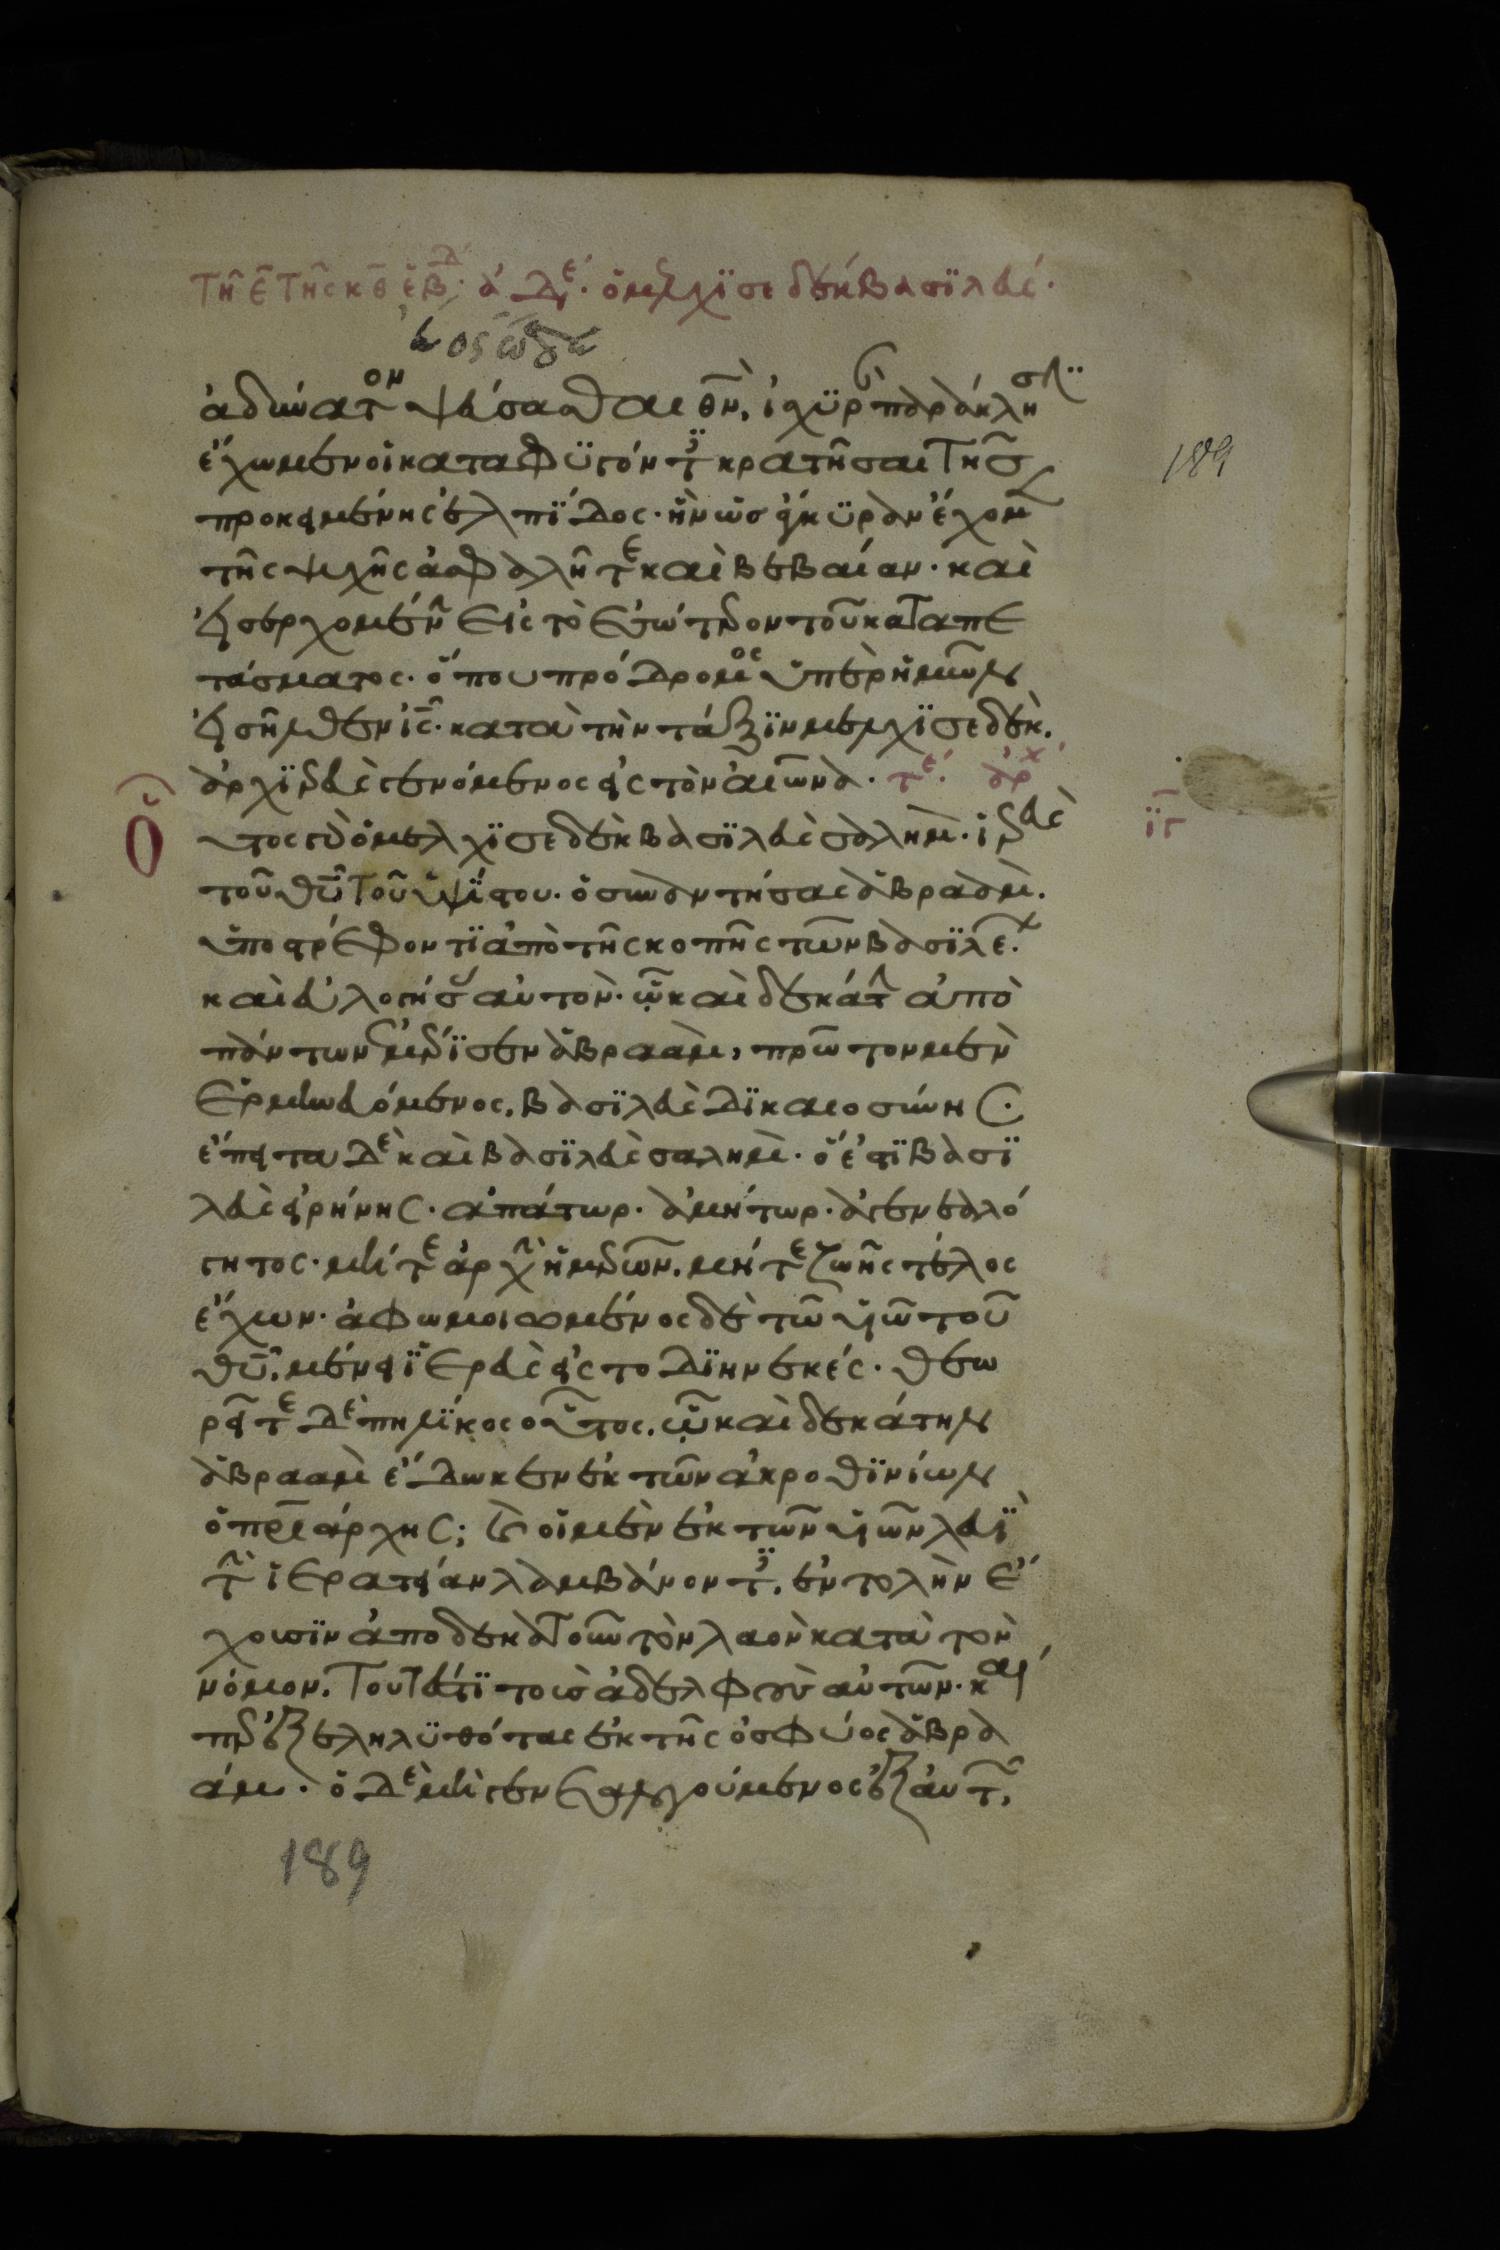 Τῆ ε̄ τῆς κθ ἑβδ. ἀδε. ὁ μελχϊσεδὲκ βασϊλεύ.
ἀδύνατον ψεύσασθαι θν, ἰσχϋρὰν παράκλησϊν
ἔχωμεν οἱ καταφϋγόντες κρατῆσαι τῆς
προκειμένης ἐλπϊδος. ἣν ὡς ἄγκϋραν ἔχομεν
τῆς ψυχῆς ἀσφαλῆ τε καὶ βεβαίαν. καὶ
εἰσερχομένην εἰς τὸ ἐσώτερον τοῦ καταπε
τάσματος. ὅπου πρόδρομος ὑπὲρ ἡμῶν
εἰσῆλθεν ις. κατὰ τὴν τάξϊν μελχϊσεδὲκ.
ἀρχϊερεὺς γενόμενος εἰς τὸν αἰῶνα. τε. ἀρχ
ϊγ
Οὗτος γὰρ ὁ μελχϊσεδὲκ βασϊλεὺς σαλὴμ. ἱερεὺς
τοῦ θυ τοῦ ὑψϊστου. ὁ συναντήσας ἀβραὰμ.
ὑποστρέφοντϊ ἀπὸ τῆς κοπῆς τῶν βασϊλέων.
καὶ εὐλογήσας αὐτὸν. ᾧ καὶ δεκάτην ἀπὸ
πάντων ἐμέρϊσεν ἀβραὰμ, πρῶτον μὲν
ἑρμηνευόμενος, βασϊλεὺς δϊκαιοσύνης.
ἔπειτα δὲ καὶ βασϊλεὺς σαλὴμ. ὅ ἐστϊ βασϊ
λεὺς εἰρήνης. ἀπάτωρ. ἀμήτωρ. ἀγενεαλό
γητος. μήτε ἀρχὴν ἡμερῶν. μήτε ζωῆς τέλος
ἔχων. ἀφωμοιωμένος δὲ τῶ υἱῶ τοῦ
θυ. μένει ϊερεὺς εἰς τὸ δϊηνεκές. θεω
ρεῖτε δὲ πηλϊκος οὗτος. ᾧ καὶ δεκάτην
ἀβραὰμ ἔδωκεν ἐκ τῶν ἀκροθϊνίων
ὁ πρϊάρχης; καὶ οἱ μὲν ἐκ τῶν υἱῶν λευϊ
τὴν ἱερατείαν λαμβάνοντες. ἐντολὴν ἔ
χουσϊν ἀποδεκατοῦν τὸν λαὸν κατὰ τὸν
νόμον. τουτέστϊ τοὺς ἀδελφοὺς αὐτῶν. καί
περ ἐξεληλϋθότας ἐκ τῆς ὀσφύος ἀβρα
άμ. ὁ δὲ μὴ γενεαλογούμενος ἐξ αὐτῶν,
189
189